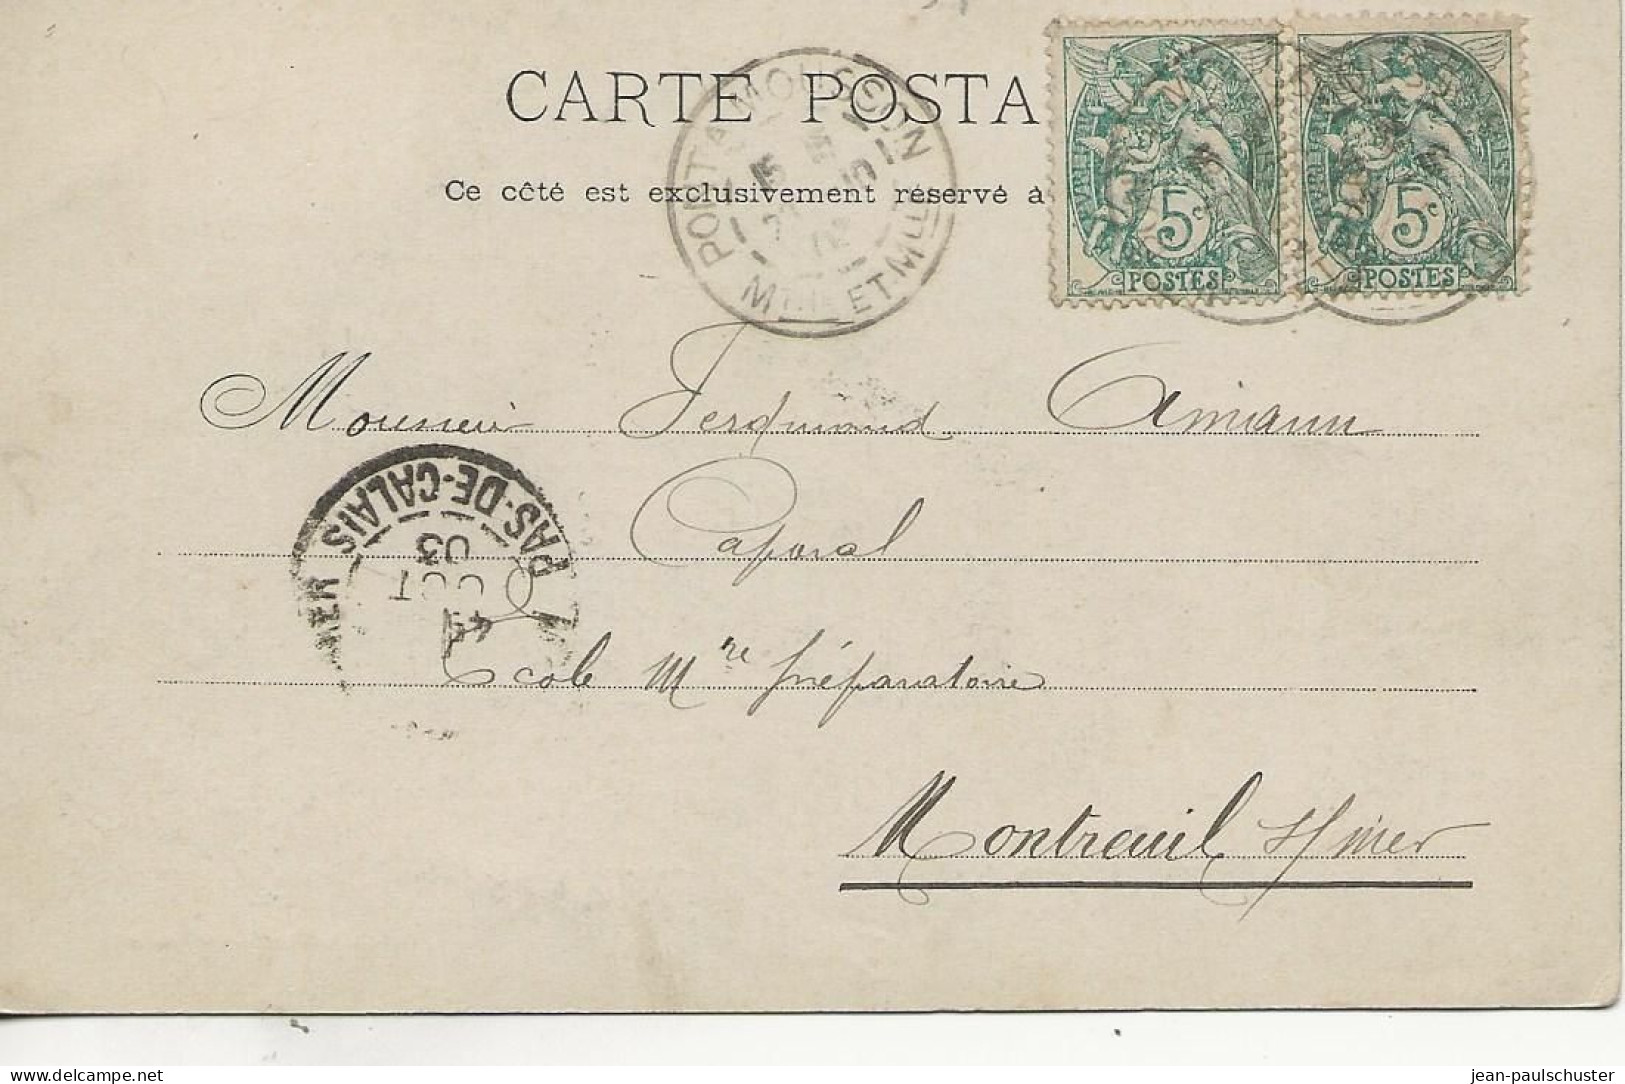 CARTE POSTA
Ce côté est exclusivement réservé à
PONT-A-MOUSSON
MTHE ET MLLE
5c
POSTES
5c
POSTES
Monsieur Ferdinand Amann
Caporal
PAS-DE-CALAIS
OCT
03
Ecole Mre préparatoire
Montreuil s/ mer
delcampe.net
jean-paulschuster